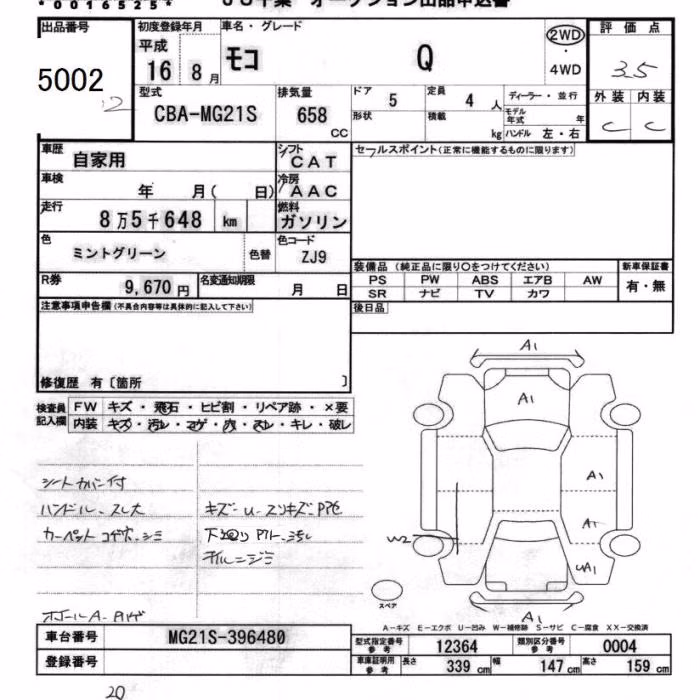 * 0 0 1 6 5 2 5 *
出品番号
5002
初度登録年月
平成
16 8月
車名・グレード
モコ Q
2WD
・
4WD
評価点
3.5
外装 内装
C C
型式
CBA-MG21S
排気量
658
CC
ドア 5
定員 4 人
ディーラー・並行
形状
積載 kg
モデル年式 年
ハンドル 左・右
車歴
自家用
シフト
CAT
車検
年 月( 日)
冷房
AAC
走行
8万5千648 km
燃料
ガソリン
色
ミントグリーン
色替
色コード
ZJ9
R券
9,670円
名変通知期限
月 日
セールスポイント(正常に機能するものに限ります)
装備品 (純正品に限り○をつけてください)
PS PW ABS エアB AW
SR ナビ TV カワ
新車保証書
有・無
後日品
注意事項申告欄(不具合内容等は具体的に記入して下さい)
修復歴 有〔箇所 〕
検査員記入欄
FW キズ・飛石・ヒビ割・リペア跡・×要
内装 キズ・汚レ・コゲ・穴・スレ・キレ・破レ
シートカバー付
ハンドル スレ大
カーペット コゲ穴・シミ
A1
A1
A1
A1
UA1
W2
A1
スペア
A-キズ E-エクボ U-凹み W-補修跡 S-サビ C-腐食 XX-交換済
車台番号
MG21S-396480
登録番号
型式指定番号 参考
12364
類別区分番号 参考
0004
車庫証明用 参考
長さ 339 cm
幅 147 cm
高さ 159 cm
20